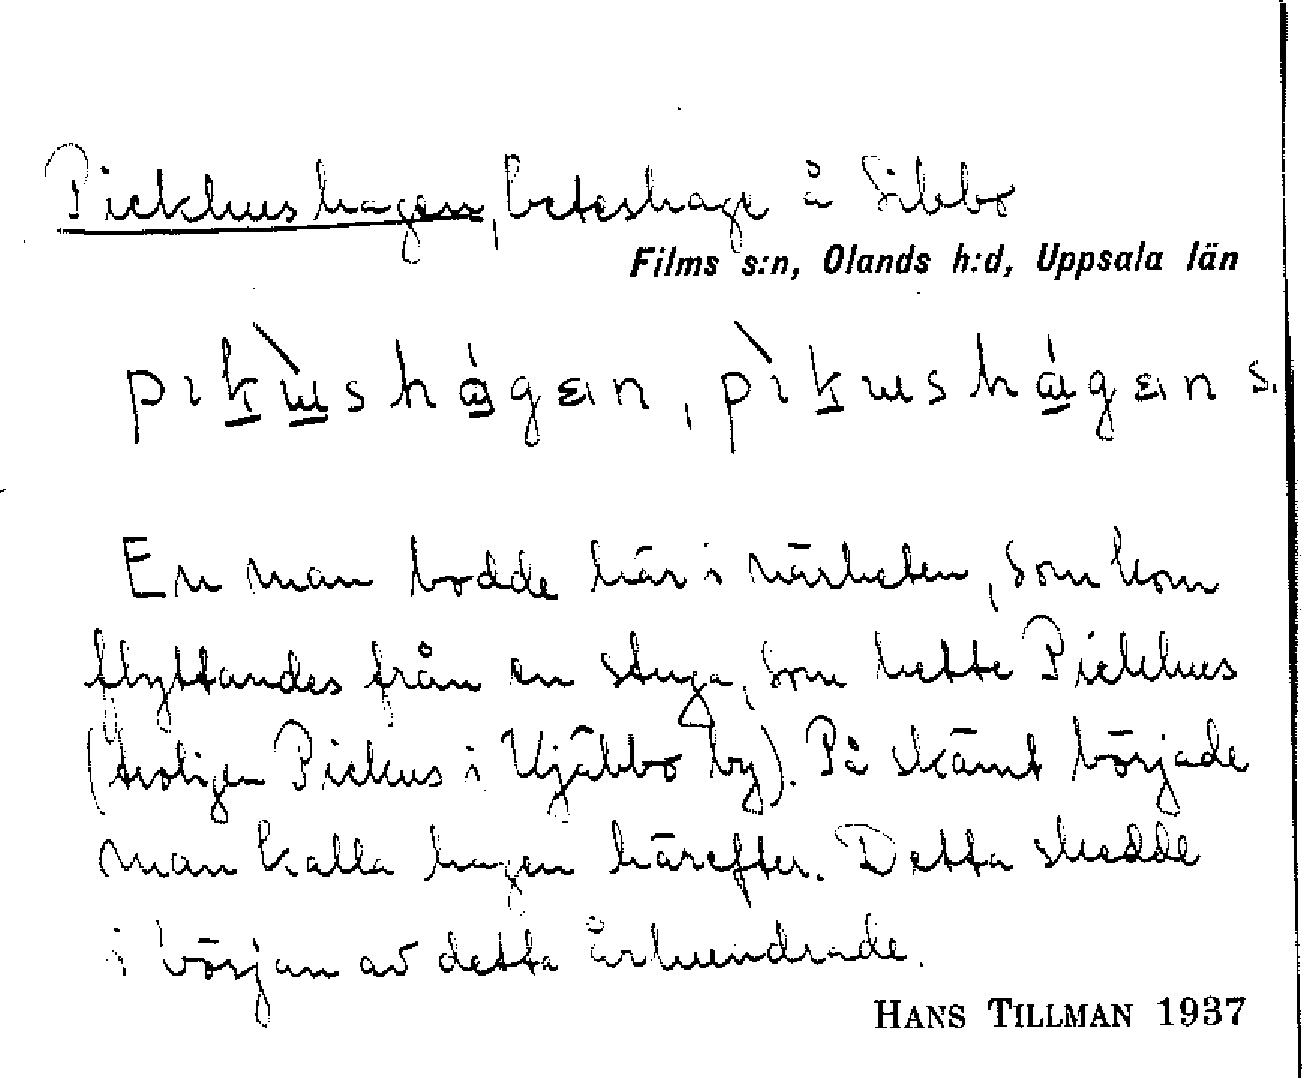 Pickhushagen, beteshage å Sibbo
Films s:n, Olands h:d, Uppsala län
pikùshágen, pìkushágen s.
En man bodde här i närheten, som kom
flyttandes från en stuga, som hette Pickhus
(troligen Pickus i Vjäbbo by). På skämt började
man kalla hagen härefter. Detta skedde
i början av detta århundrade.
HANS TILLMAN 1937